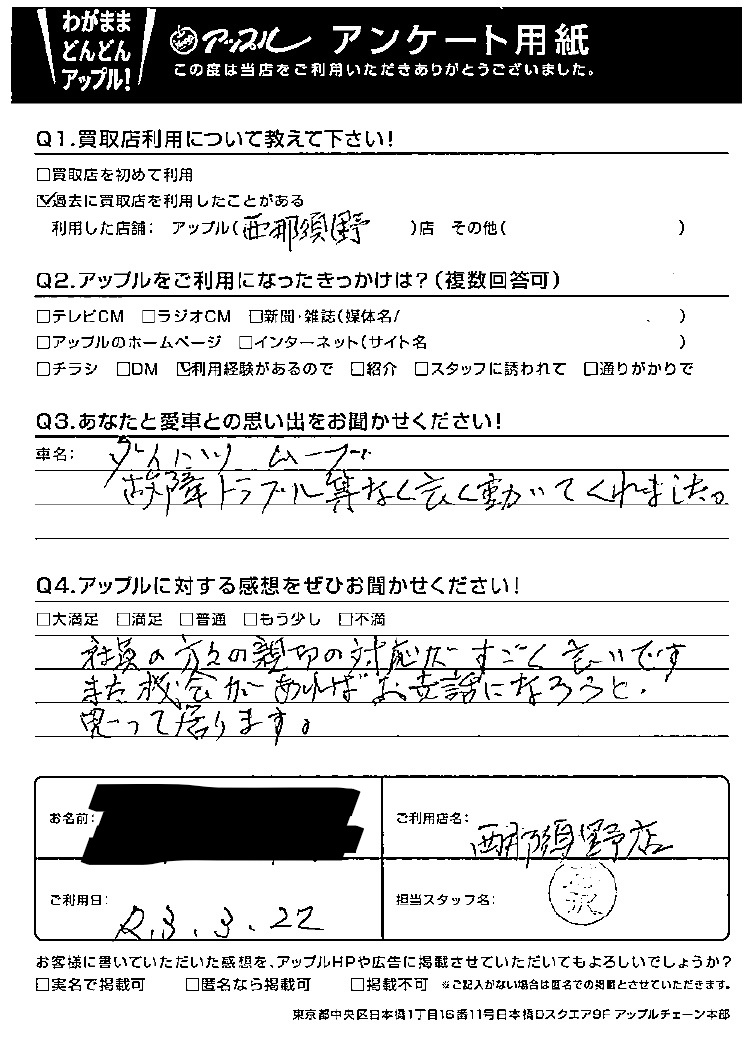 わがまま
どんどん
アップル!
アップル アンケート用紙
この度は当店をご利用いただきありがとうございました。
Q1.買取店利用について教えて下さい!
□買取店を初めて利用
☑過去に買取店を利用したことがある
利用した店舗: アップル(西那須野 )店 その他( )
Q2.アップルをご利用になったきっかけは?(複数回答可)
□テレビCM □ラジオCM □新聞・雑誌(媒体名/ )
□アップルのホームページ □インターネット(サイト名 )
□チラシ □DM ☑利用経験があるので □紹介 □スタッフに誘われて □通りがかりで
Q3.あなたと愛車との思い出をお聞かせください!
車名: ダイハツ ムーブ
故障トラブル等なく良く動いてくれました。
Q4.アップルに対する感想をぜひお聞かせください!
□大満足 □満足 □普通 □もう少し □不満
社員の方々の親切の対応がすごく良いです
また機会があればお世話になろうと
思って居ります。
お名前:
ご利用店名: 西那須野店
ご利用日: R3.3.22
担当スタッフ名:
お客様に書いていただいた感想を、アップルHPや広告に掲載させていただいてもよろしいでしょうか?
□実名で掲載可 □匿名なら掲載可 □掲載不可 ※ご記入がない場合は匿名での掲載とさせていただきます。
東京都中央区日本橋1丁目16番11号日本橋Dスクエア9F アップルチェーン本部